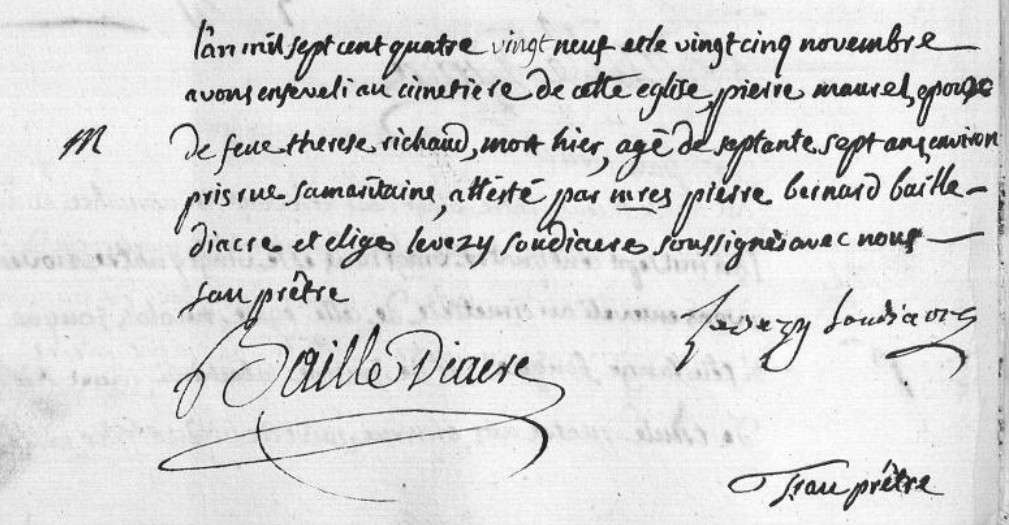 l'an mil sept cent quatre vingt neuf et le vingt cinq novembre
avons enseveli au cimetiere de cette eglise, pierre maurel, epoux
M de feue therese richaud, mort hier, agé de septante sept ans, environ
pris rue samaritaine, attesté par mres pierre bernard baille
diacre et elige levezy soudiacre soussignés avec nous
jau prêtre
Levezy soudiacre
Baille Diacre
jau prêtre